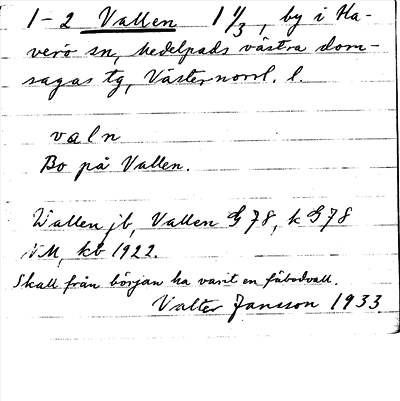 1-2 Vallen 1 1/3, by i Ha-
verö sn, Medelpads västra dom-
sagas tg, Västernorrl. l.
valn
Bo på Vallen.
Wallen jb, Vallen G 78, k G 78
NM, kb 1922.
Skall från början ha varit en fäbodvall.
Valter Jansson 1933